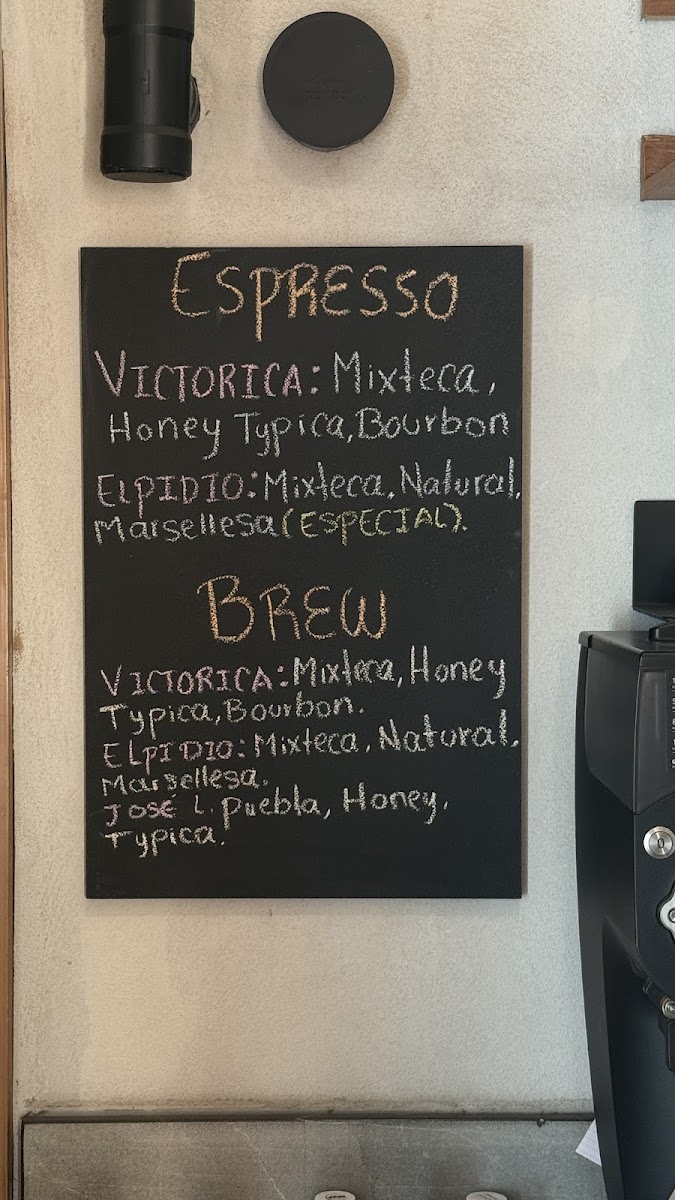 ESPRESSO
VICTORICA: Mixteca,
Honey Typica, Bourbon
ELPIDIO: Mixteca. Natural.
Marsellesa (ESPECIAL).
BREW
VICTORICA: Mixteca, Honey
Typica, Bourbon.
ELPIDIO: Mixteca. Natural.
Marsellesa.
JOSÉ L. Puebla, Honey.
Typica.